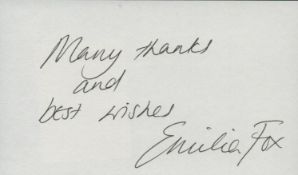 Many thanks
and
best wishes
Emilia Fox